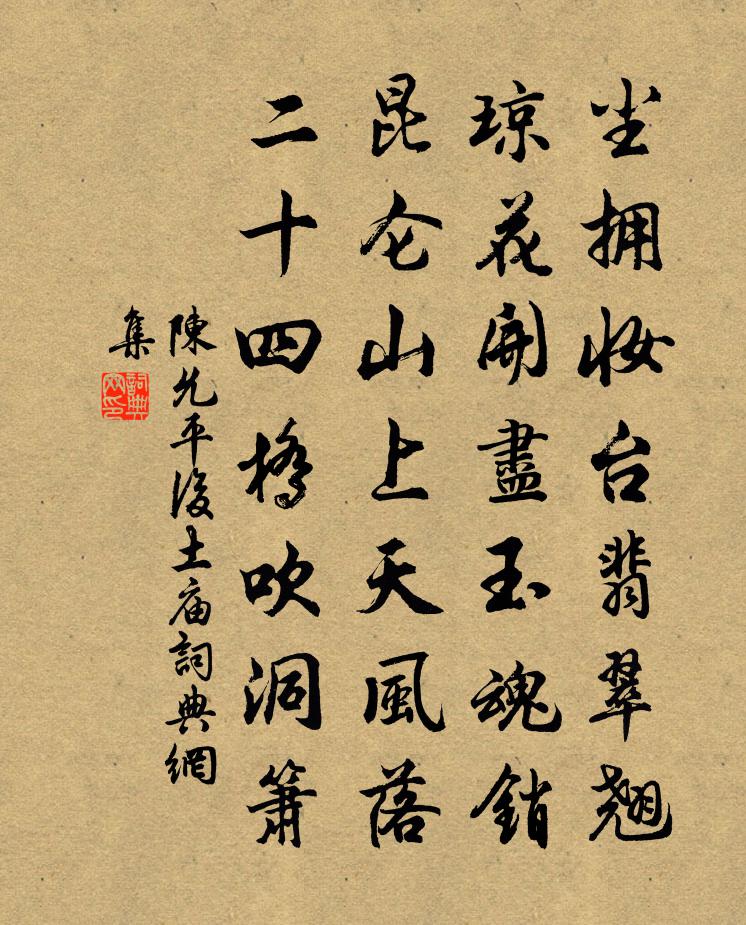 坐拥妆台翡翠翘
琼花開盡玉魂銷
昆仑山上天風落
二十四橋吹洞簫
陳允平後土庙詞典網
集
詞典網印